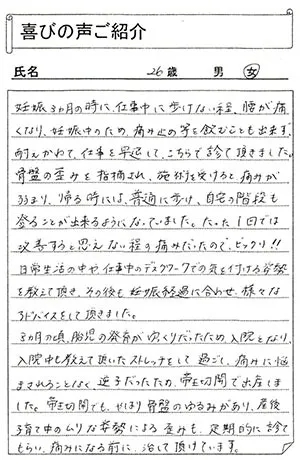 喜びの声ご紹介
氏名 26歳 男 女
妊娠3ヵ月の時に、仕事中に歩けない程、腰が痛
くなり、妊娠中のため、痛み止め等を飲むことも出来ず、
耐えかねて、仕事を早退して、こちらで診て頂きました。
骨盤の歪みを指摘され、施術を受けると痛みが
弱まり、帰る時には、普通に歩け、自宅の階段も
登ることが出来るようになっていました。たった1回では
改善すると思えない程の痛みだったので、ビックリ!!
日常生活の中や仕事中のデスクワークでの気を付ける姿勢
を教えて頂き、その後も妊娠経過に合わせ、様々な
アドバイスをして頂きました。
8ヵ月の頃、胎児の発育が ため、入院となり、
入院中も教えて頂いたストレッチをして過ごし、痛みに悩
まされることなく、逆子だったため、帝王切開で出産しま
した。帝王切開でも、やはり骨盤のゆるみがあり、産後
子育て中のムリな姿勢による歪みも、定期的に診て
もらい、痛みになる前に、治して頂けています。